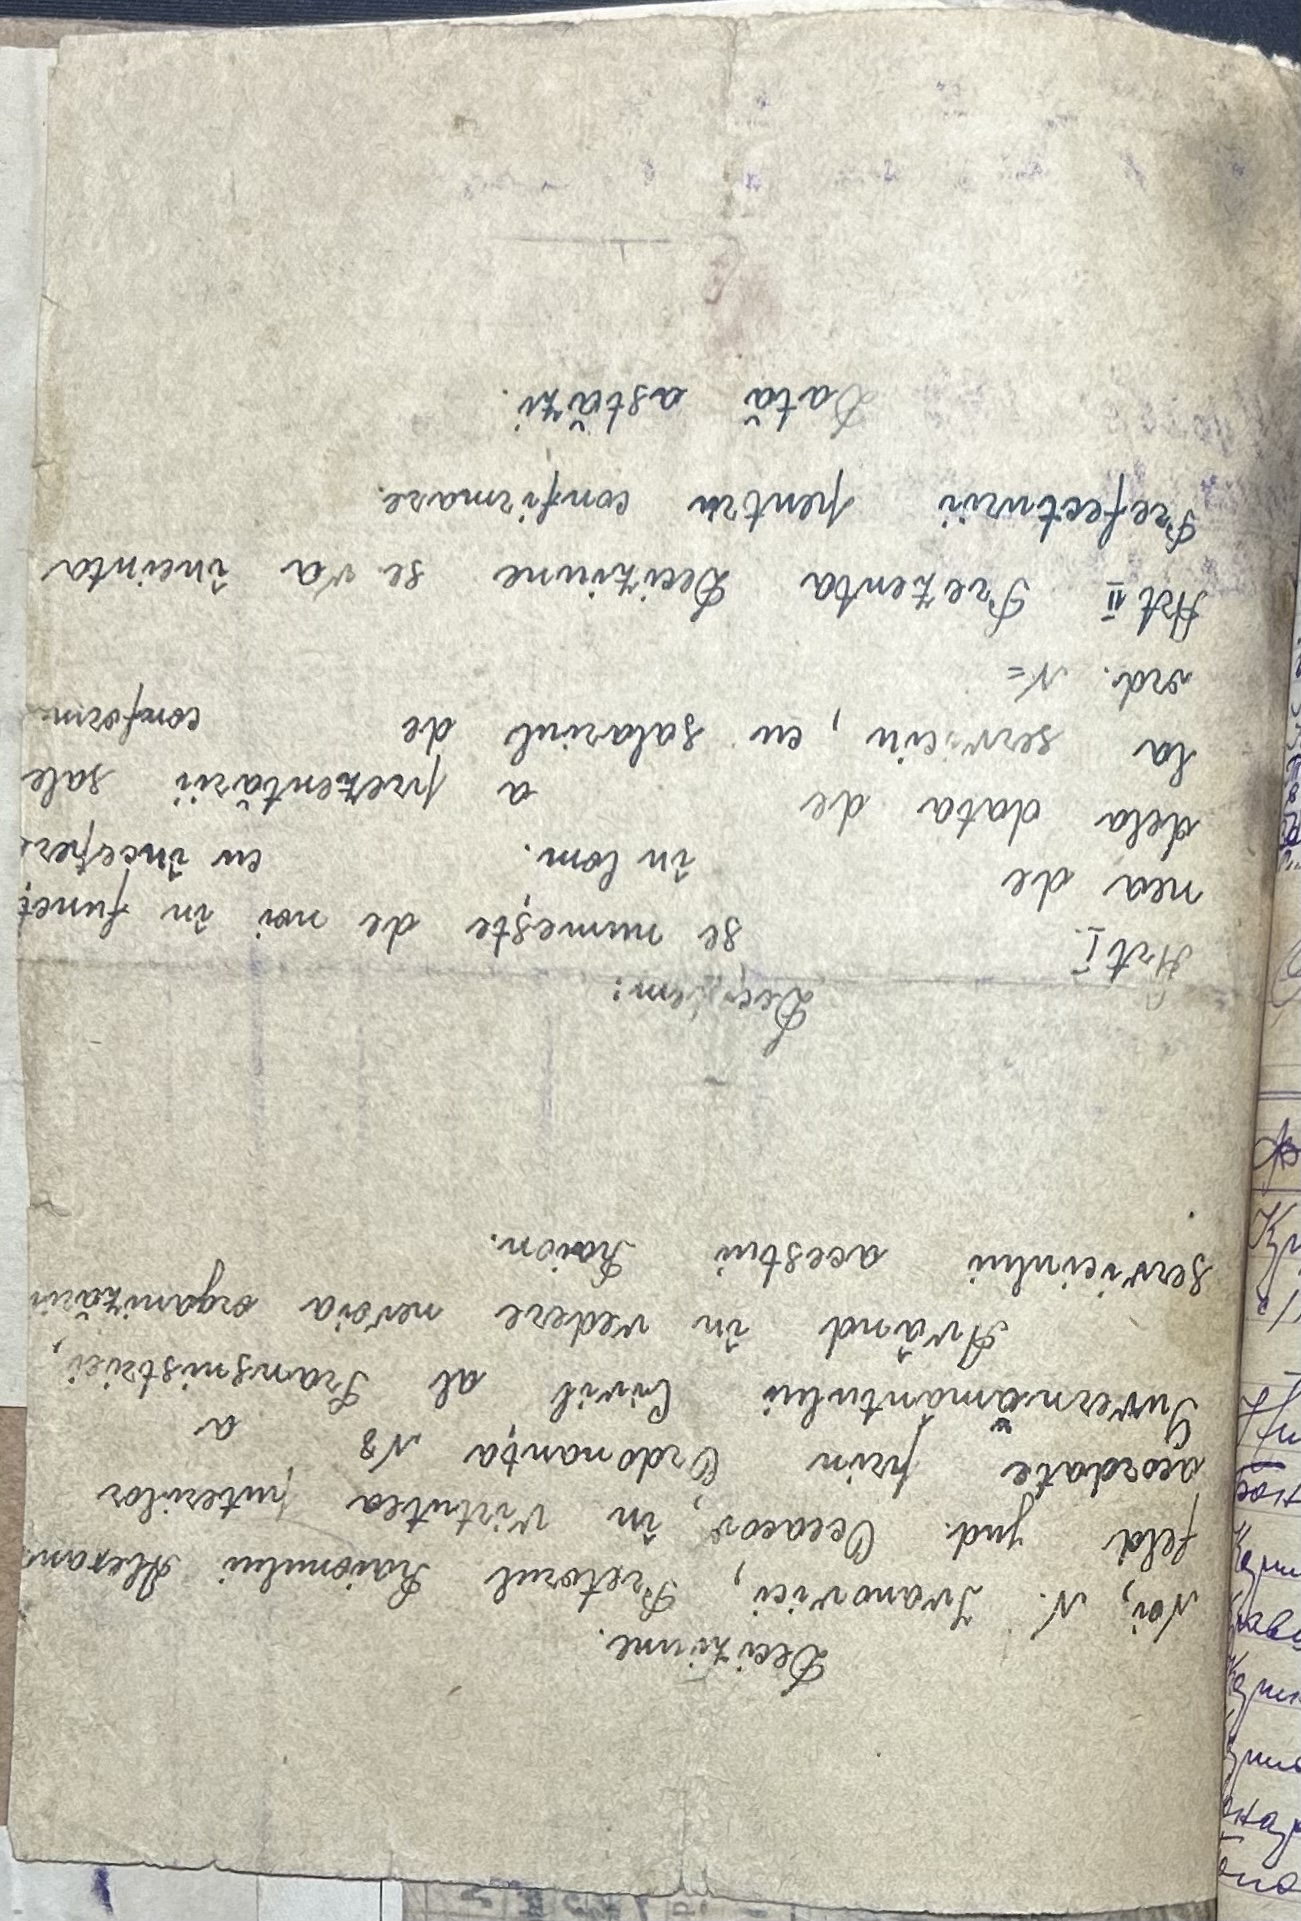 Deciziune.
Noi, N. Ivanovici, Pretorul Raionului Alexan
feld jud. Oceacov, în virtutea puterilor
acordate prin Ordonanța N8 a
Guvernământului Civil al Transnistriei,
Având în vedere nevoia organizării
serviciului acestui Raion.
Decidem:
Art I. se numește de noi în funcț
nea de în Com. cu începer
dela data de a prezentării sale
la serviciu, cu salariul de conform
ord. N=
Art II Prezenta Deciziune se va încinta
Prefecturii pentru confirmare.
Dată astăzi.